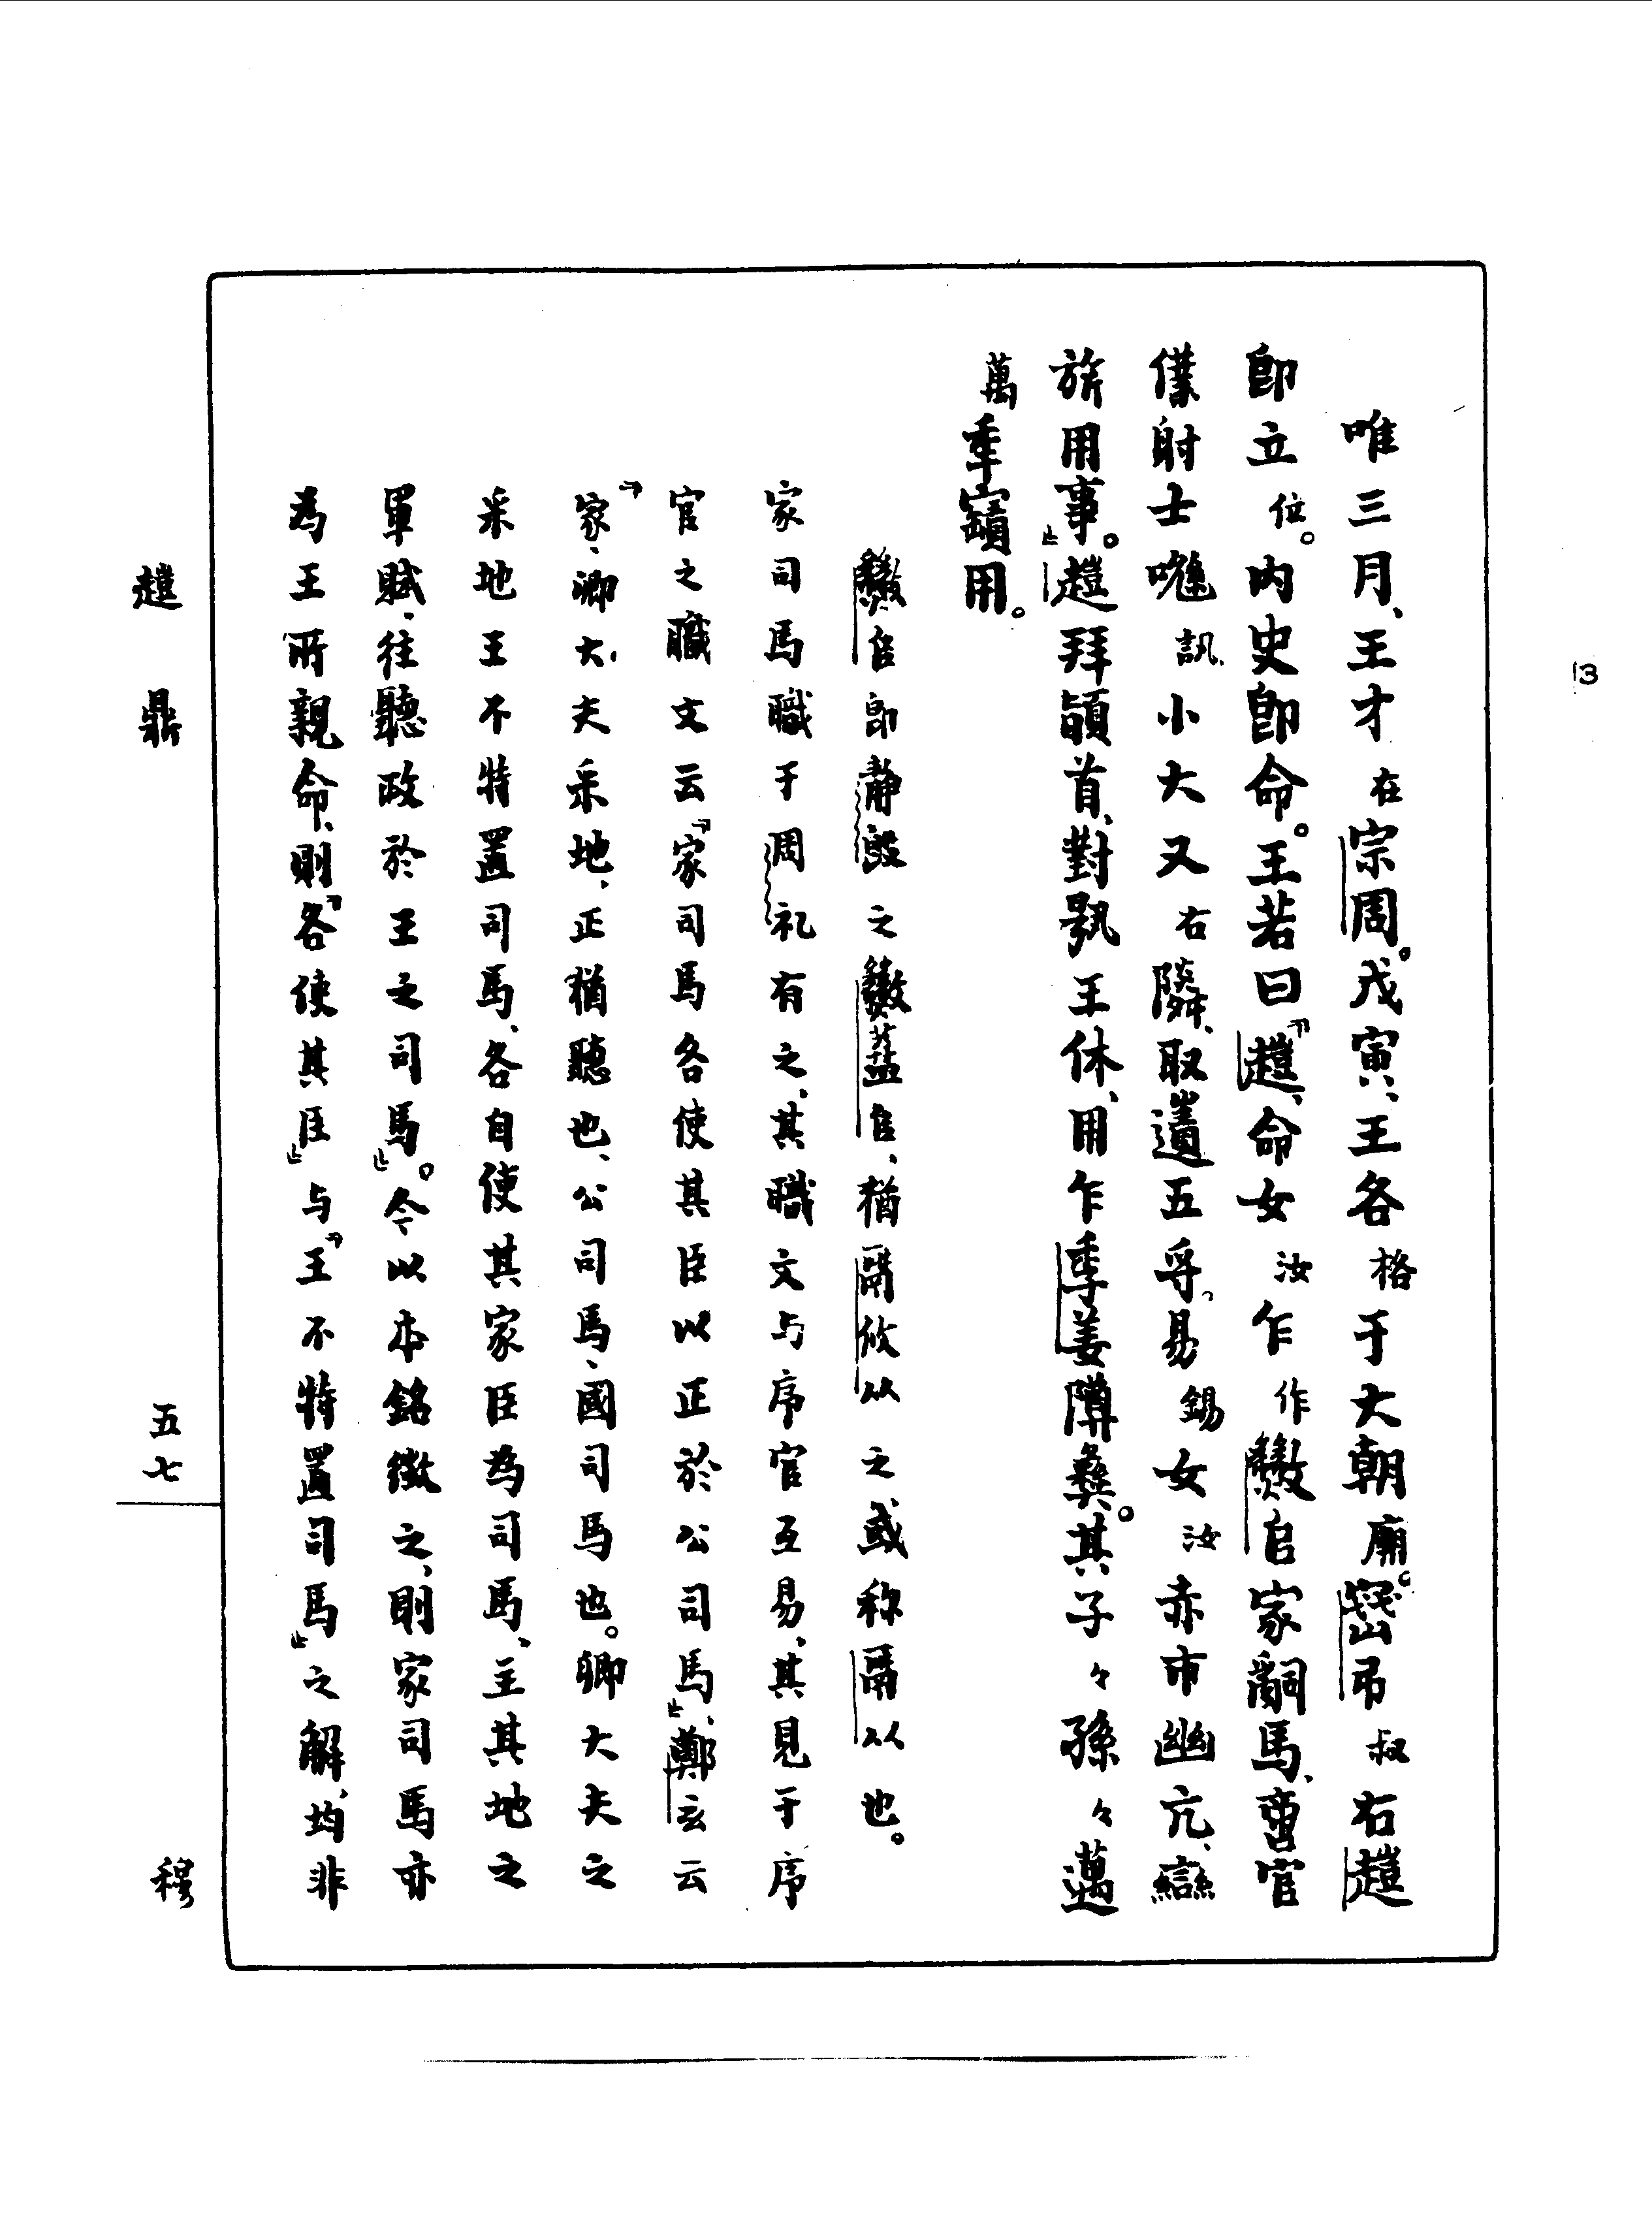 唯三月、王才在宗周。戊寅、王各格于大朝廟。密弔叔右趞
即立位。內史即命。王若曰『趞、命女汝乍作𤔲𠂤冢嗣馬、啻官
僕射士訊小大又右隣、取遺五寽。易錫女汝赤巿幽亢、䜌
旂用事。』趞拜𩒨首、對𩁹王休、用乍季姜𨺅彝。其子々孫々邁
萬年寶用。
𠂤即靜𣪘之𥂴𠂤、猶䚄攸从之或称䚄从也。
冢司馬職于周礼有之、其職文与序官互易、其見于序
官之職文云『家司馬各使其臣以正於公司馬』、鄭玄云
『家、卿大夫采地、正猶聽也、公司馬、國司馬也。卿大夫之
采地王不特置司馬、各自使其家臣為司馬、主其地之
軍賦、往聽政於王之司馬』。今以本銘徵之、則冢司馬亦
為王所親命、則『各使其臣』与『王不特置司馬』之解、均非
趞鼎
五七
穆
13